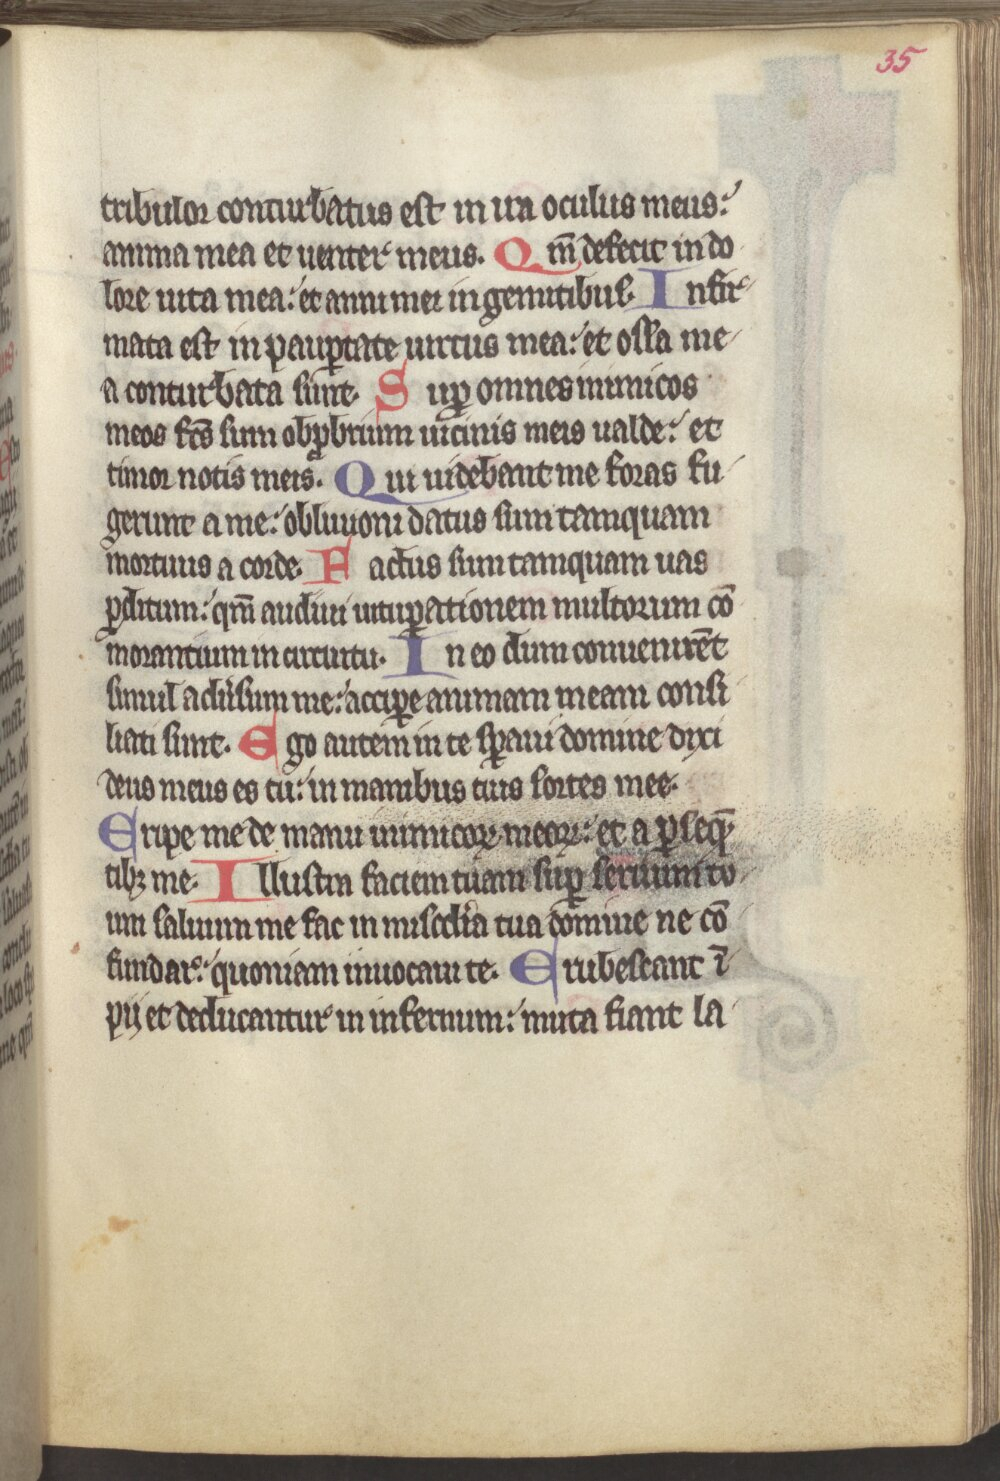 35
tribulor conturbatus est in ira oculus meus:
anima mea et uenter meus. Qm̄ defecit in do
lore uita mea: et anni mei in gemitibus. Infir
mata est in paup̱tate uirtus mea: et ossa me
a conturbata sunt. Sup̱ omnes inimicos
meos fc̄s sum obp̱brium uicinis meis ualde: et
timor notis meis. Qui uidebant me foras fu
gerunt a me: obliuioni datus sum tamquam
mortuus a corde. Factus sum tamquam uas
p̱ditum: qm̄ audiui uitup̱ationem multorum cō
morantium in circuitu. In eo dum conuenirēt
simul adūsum me: accip̱e animam meam consi
liati sunt. Ego autem in te sp̱aui domine dixi
deus meus es tu: in manibus tuis sortes mee.
Eripe me de manu inimicoꝝ meoꝝ: et a p̱seq̄
tibꝫ me. Illustra faciem tuam sup̱ seruum tu
um saluum me fac in misc̄dia tua domine ne cō
fundar: quoniam inuocaui te. Erubescant ī
pij et deducantur in infernum: muta fiant la